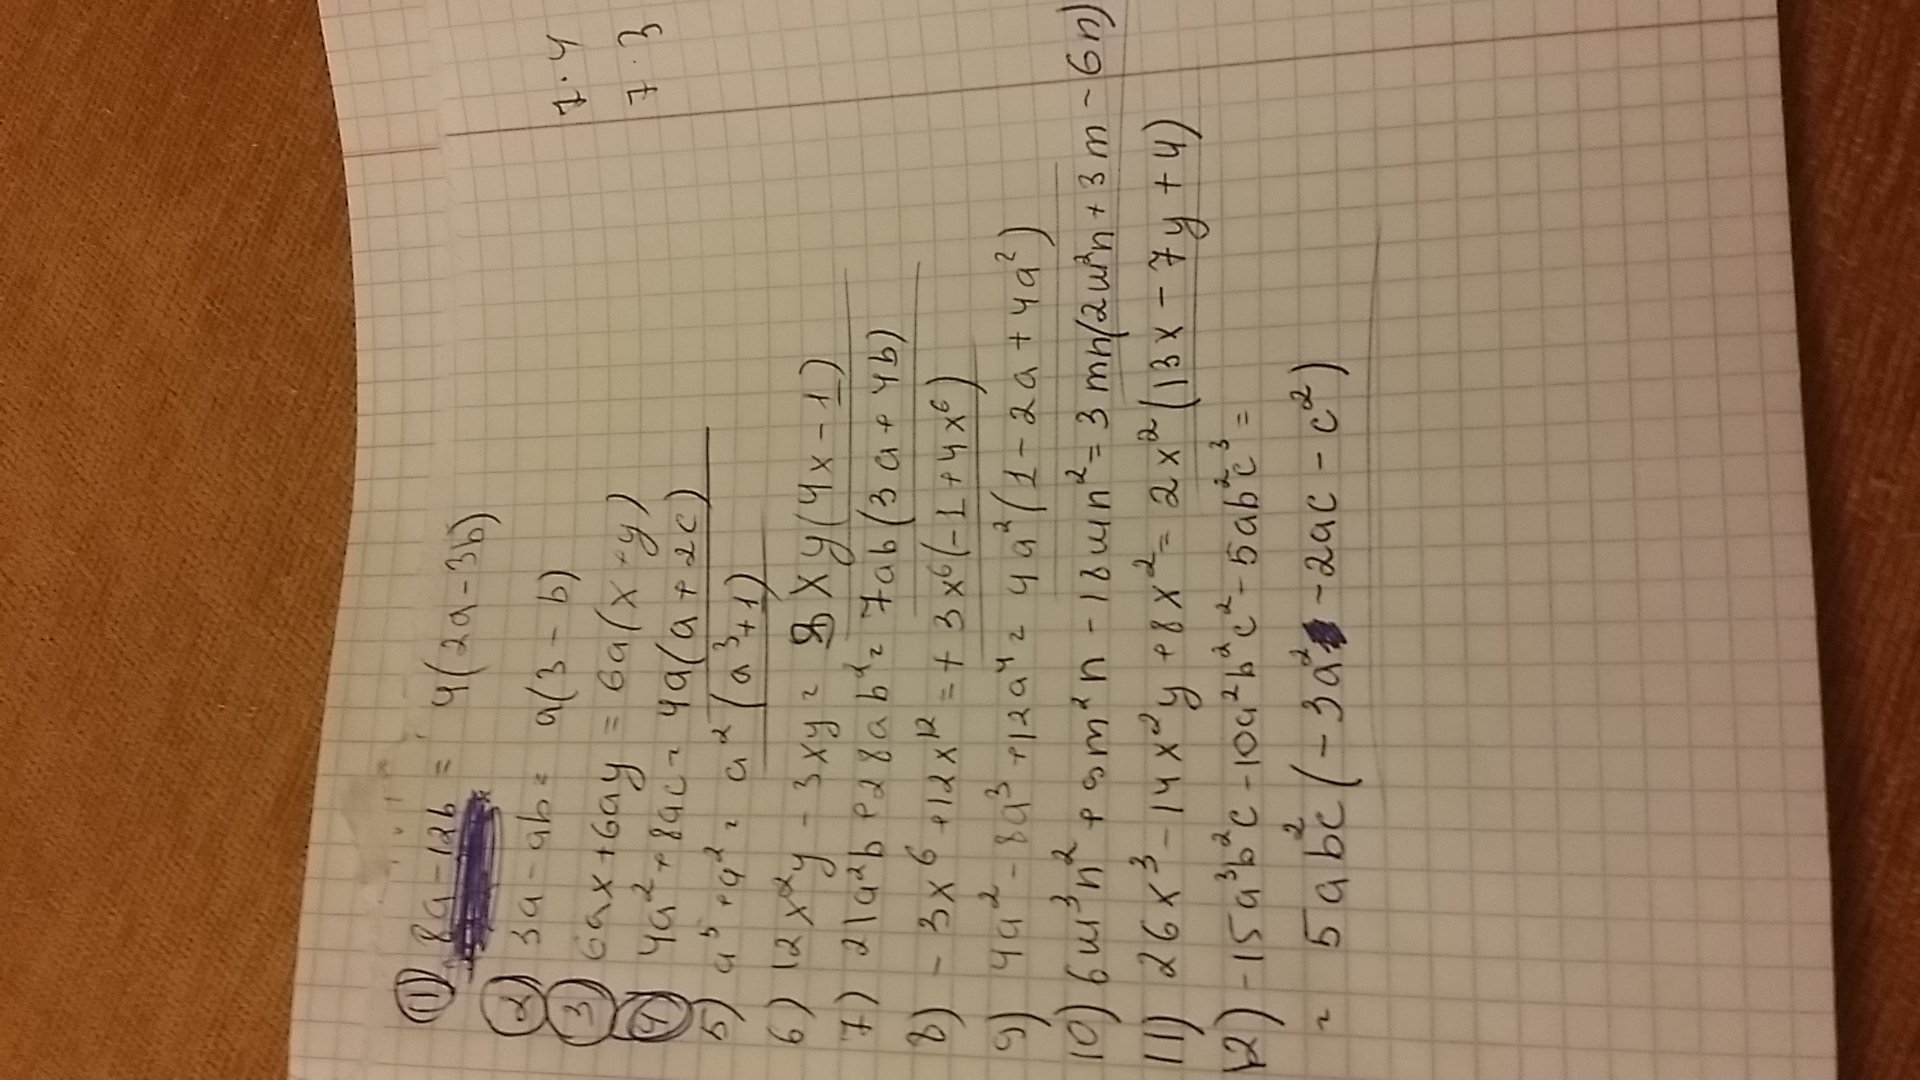 7·4
7·3
1) 8a-12b = 4(2a-3b)
2) 3a-ab= a(3-b)
3) 6ax+6ay = 6a(x+y)
4) 4a²+8ac= 4a(a+2c)
5) a⁵+a²= a²(a³+1)
6) 12x²y-3xy= 3xy(4x-1)
7) 21a²b+28ab²= 7ab(3a+4b)
8) -3x⁶+12x¹² =+3x⁶(-1+4x⁶)
9) 4a²-8a³+12a⁴= 4a²(1-2a+4a²)
10) 6m³n²+9m²n-18mn²=3mn(2m²n+3m-6n)
11) 26x³-14x²y+8x²=2x²(13x-7y+4)
12) -15a³b²c-10a²b²c²-5ab²c³=
= 5ab²c(-3a²-2ac-c²)